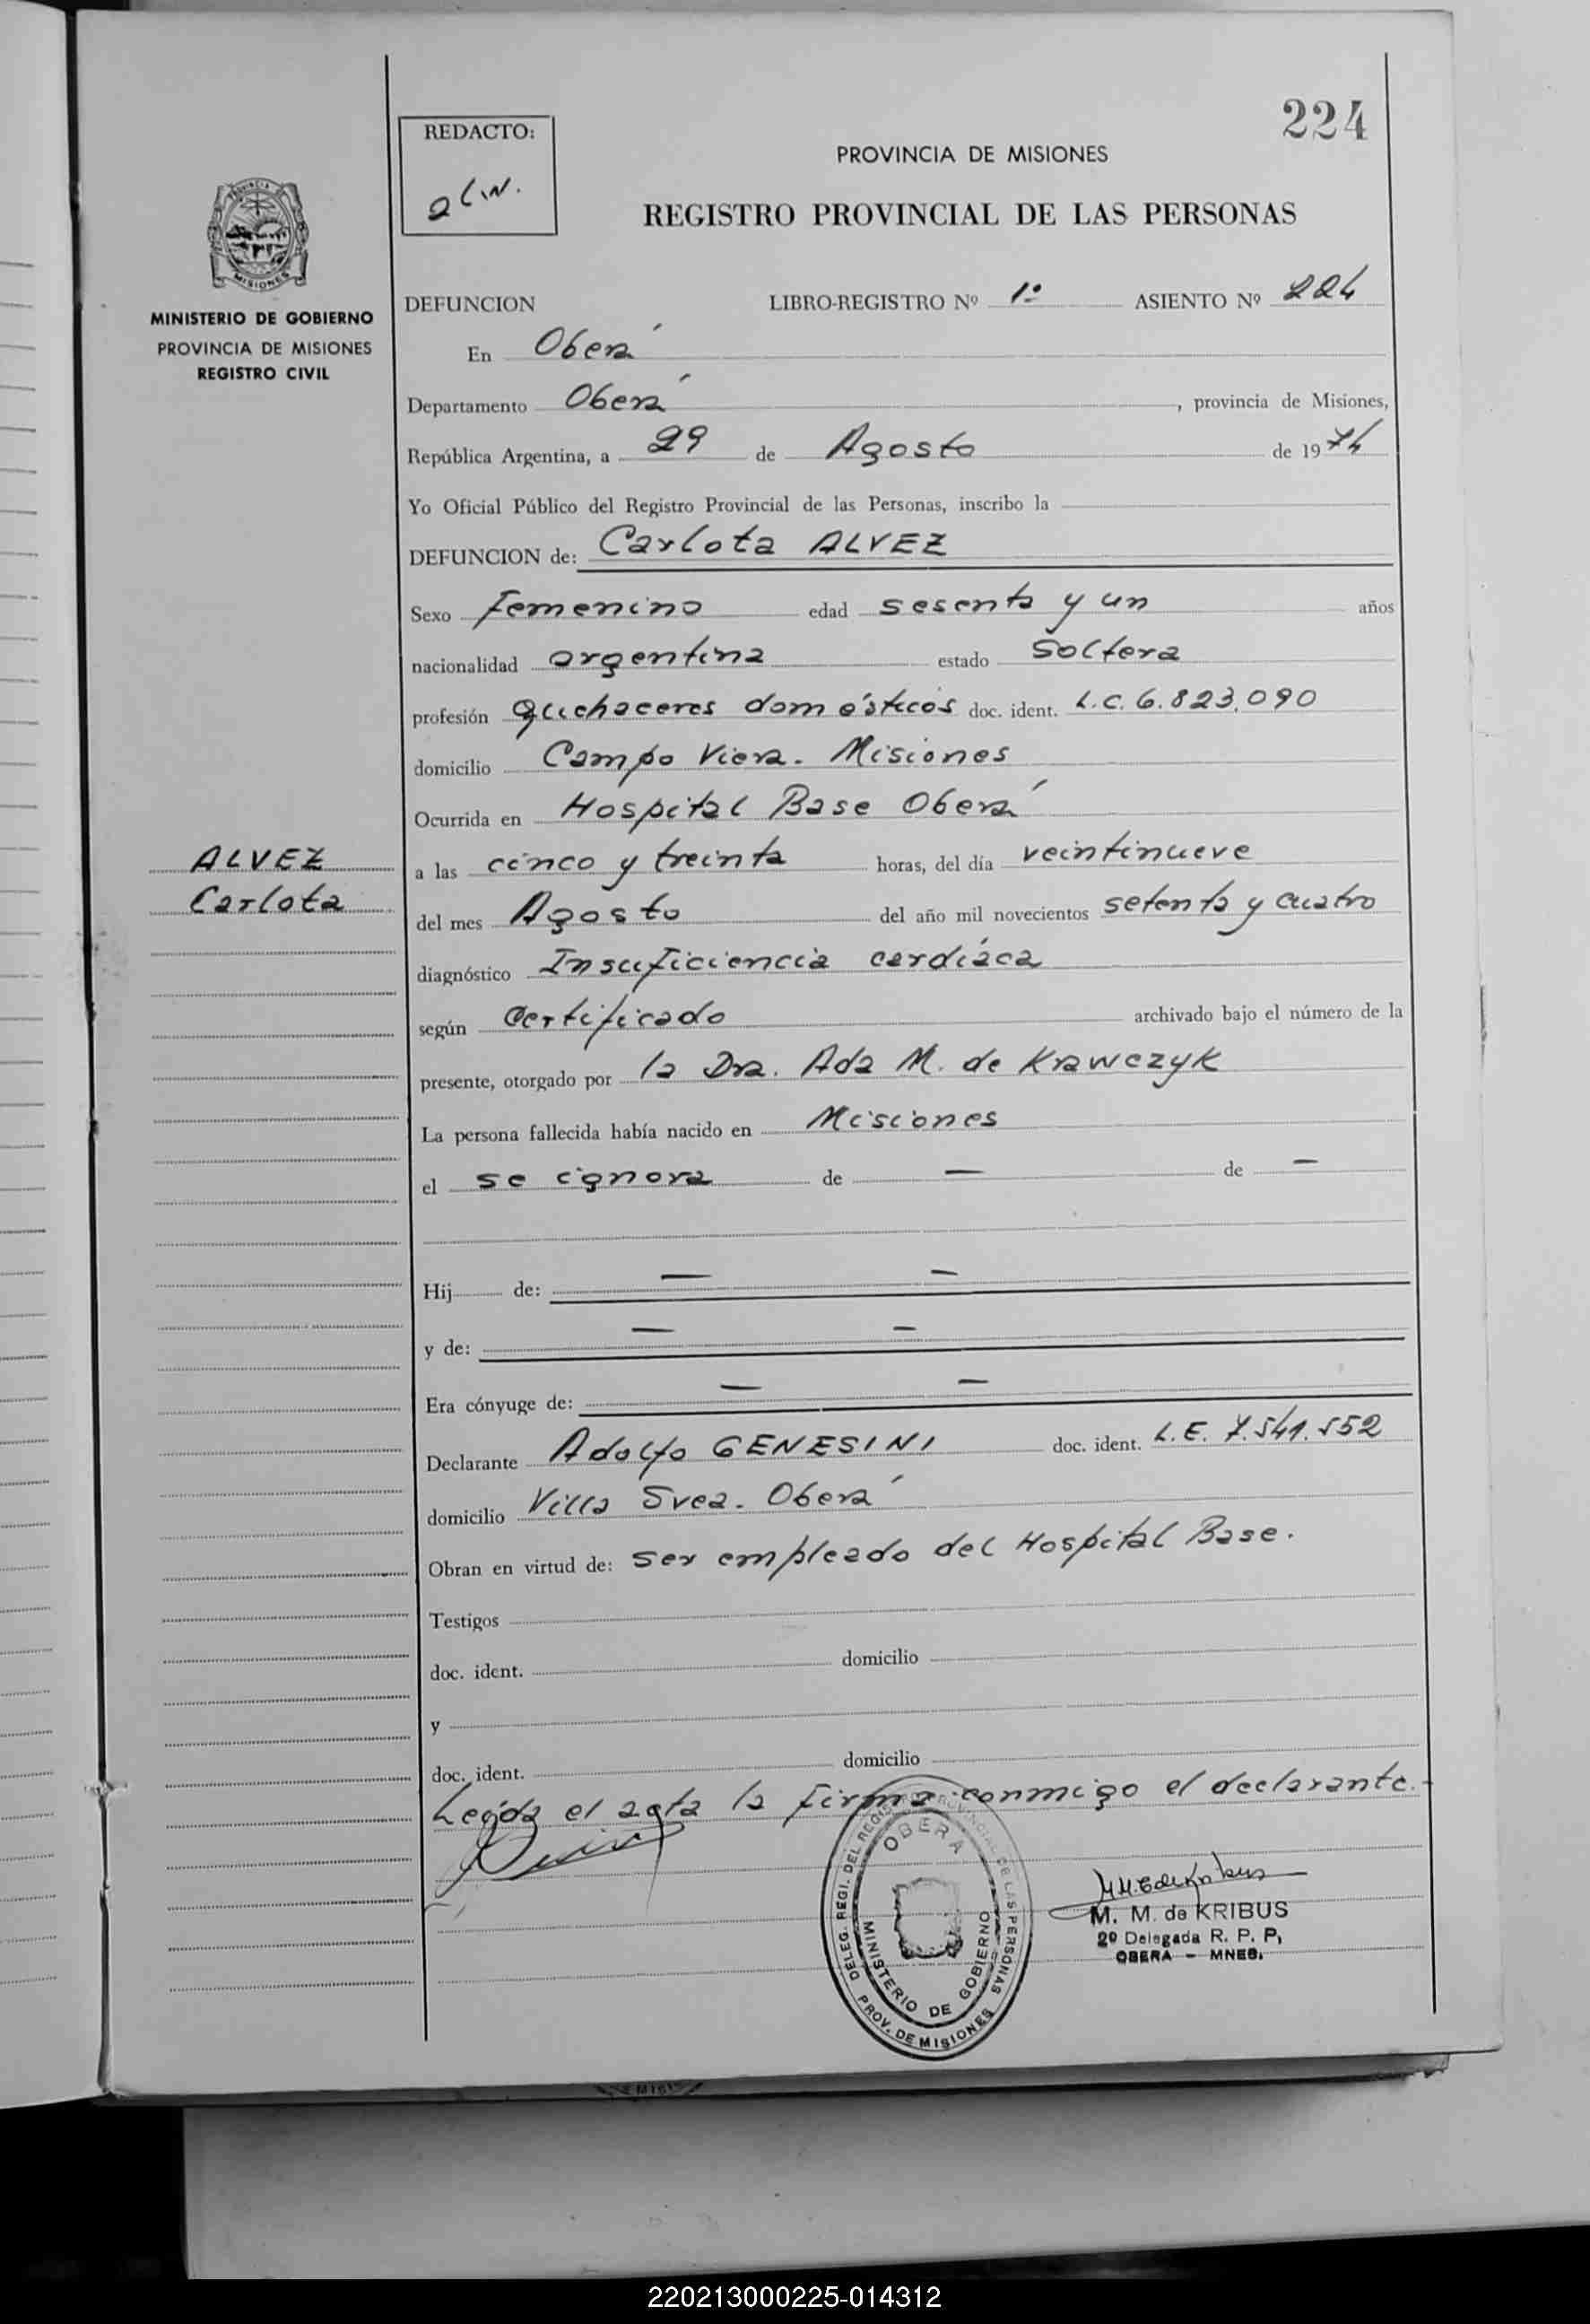 224
REDACTO:
PROVINCIA DE MISIONES
REGISTRO PROVINCIAL DE LAS PERSONAS
MISIONES
MINISTERIO DE GOBIERNO
PROVINCIA DE MISIONES
REGISTRO CIVIL
DEFUNCION LIBRO-REGISTRO Nº 1º ASIENTO Nº 224
En Oberá
Departamento Oberá, provincia de Misiones,
República Argentina, a 29 de Agosto de 1974
Yo Oficial Público del Registro Provincial de las Personas, inscribo la
DEFUNCION de: Carlota ALVEZ
Sexo Femenino edad sesenta y un años
nacionalidad argentina estado Soltera
profesión quehaceres domésticos doc. ident. L.C. 6.823.090
domicilio Campo Viera. Misiones
Ocurrida en Hospital Base Oberá
ALVEZ
Carlota
a las cinco y treinta horas, del día veintinueve
del mes Agosto del año mil novecientos setenta y cuatro
diagnóstico Insuficiencia cardíaca
según Certificado archivado bajo el número de la
presente, otorgado por la Dra. Ada M. de Krawczyk
La persona fallecida había nacido en Misiones
el se ignora de — de —
Hij de: — —
y de: — —
Era cónyuge de: — —
Declarante Adolfo GENESINI doc. ident. L.E. 7.541.552
domicilio Villa Svea. Oberá
Obran en virtud de: ser empleado del Hospital Base.
Testigos
doc. ident. domicilio
y
doc. ident. domicilio
Leída el acta la firma conmigo el declarante.-
DELEG. REGI. DEL REGISTRO PROVINCIAL DE LAS PERSONAS
OBERA
MINISTERIO DE GOBIERNO
PROV. DE MISIONES
M. M. de KRIBUS
2º Delegada R. P. P.
OBERA - MNES.
220213000225-014312